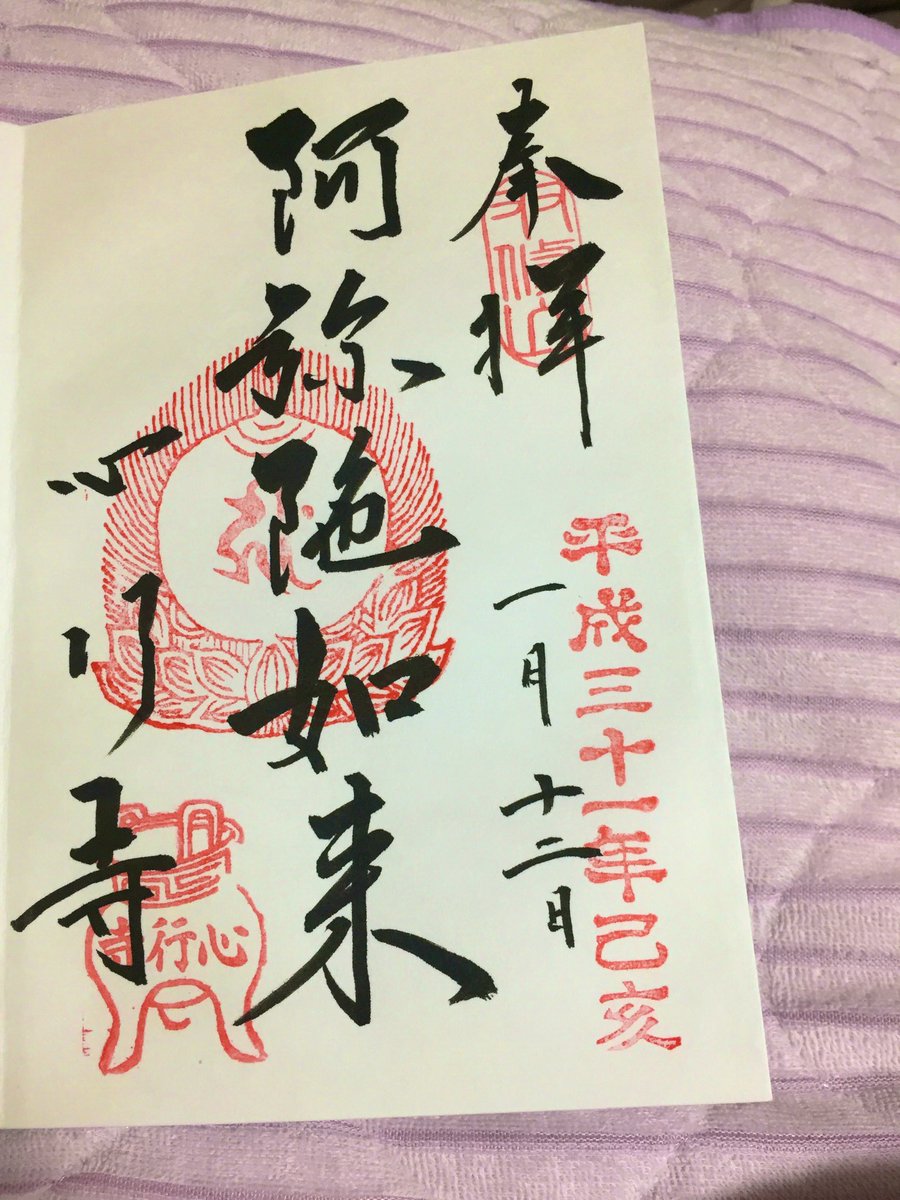 奉拝
平成三十一年己亥
一月十二日
阿弥陁如来
心行寺
心行寺